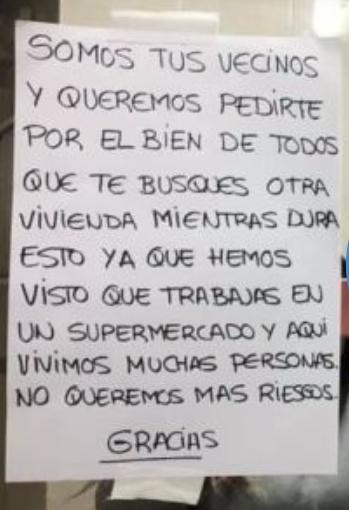 SOMOS TUS VECINOS
Y QUEREMOS PEDIRTE
POR EL BIEN DE TODOS
QUE TE BUSQUES OTRA
VIVIENDA MIENTRAS DURA
ESTO YA QUE HEMOS
VISTO QUE TRABAJAS EN
UN SUPERMERCADO Y AQUÍ
VIVIMOS MUCHAS PERSONAS.
NO QUEREMOS MAS RIESGOS.
GRACIAS